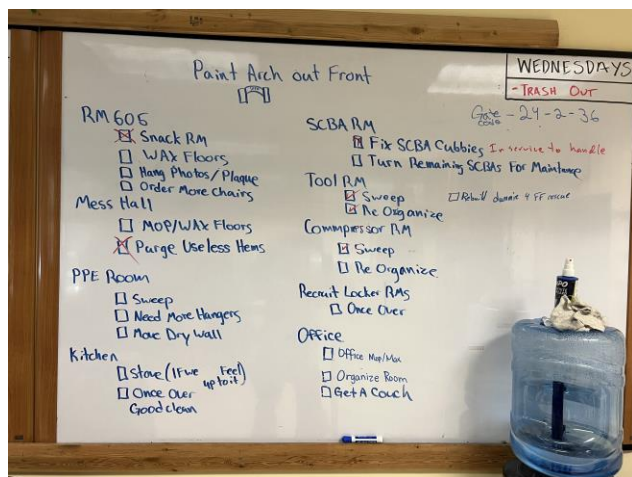 Paint Arch out Front
WEDNESDAYS
- TRASH OUT
Gate code - 24-2-36
RM 605
Snack RM
WAx Floors
Hang Photos/Plaque
Order More Chairs
Mess Hall
Mop/WAx Floors
Purge Useless Items
PPE Room
Sweep
Need More Hangers
Move Dry Wall
Kitchen
Stove (If we Feel
up to it)
Once Over
Good clean
SCBA RM
Fix SCBA Cubbies In service to handle
Turn Remaining SCBAs For Maintance
Tool RM
Sweep
Re Organize
Rebuild dummie 4 FF rescue
Commpressor RM
Sweep
Re Organize
Recruit Locker RMs
Once Over
Office
Office Mop/Wax
Organize Room
Get A Couch